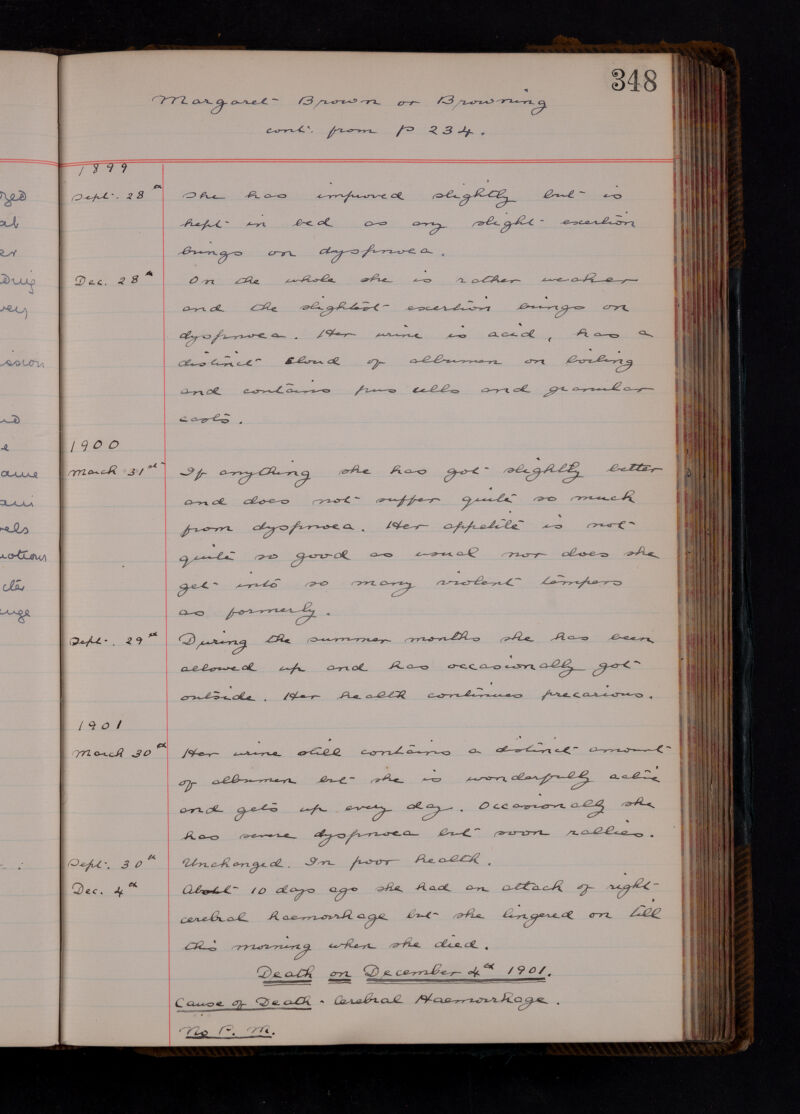 348
Margaret Brown or Browning
cont. from p 234.
1899
Sept. 28th She has improved slightly but is
kept in bed as any slight exertion
brings on dyspnoea.
Dec. 28th On the whole she is rather weaker
and the slightest exertion brings on
dyspnoea. Her urine is acid, has a
distinct cloud of albumen on boiling
and contains pus cells and granular
casts.
1900
March 31st If anything she has got slightly better
and does not suffer quite so much
from dyspnoea. Her appetite is not
quite so good as usual nor does she
get into so many violent tempers
as formerly.
Sept. 29th During the summer months she has been
allowed up and has occasionally got
outside. Her health continues precarious.
1901
March 30th Her urine still contains a distinct amount
of albumen but she is wonderfully active
and gets up every day. Occasionally she
has severe dyspnoea but soon rallies.
Sept. 30th Unchanged. In poor health.
Dec. 4th About 10 days ago she had an attack of right
cerebral haemorrhage but she lingered on till
this morning when she died.
Death on December 4th 1901.
Cause of Death - Cerebral Haemorrhage.
No P. M.